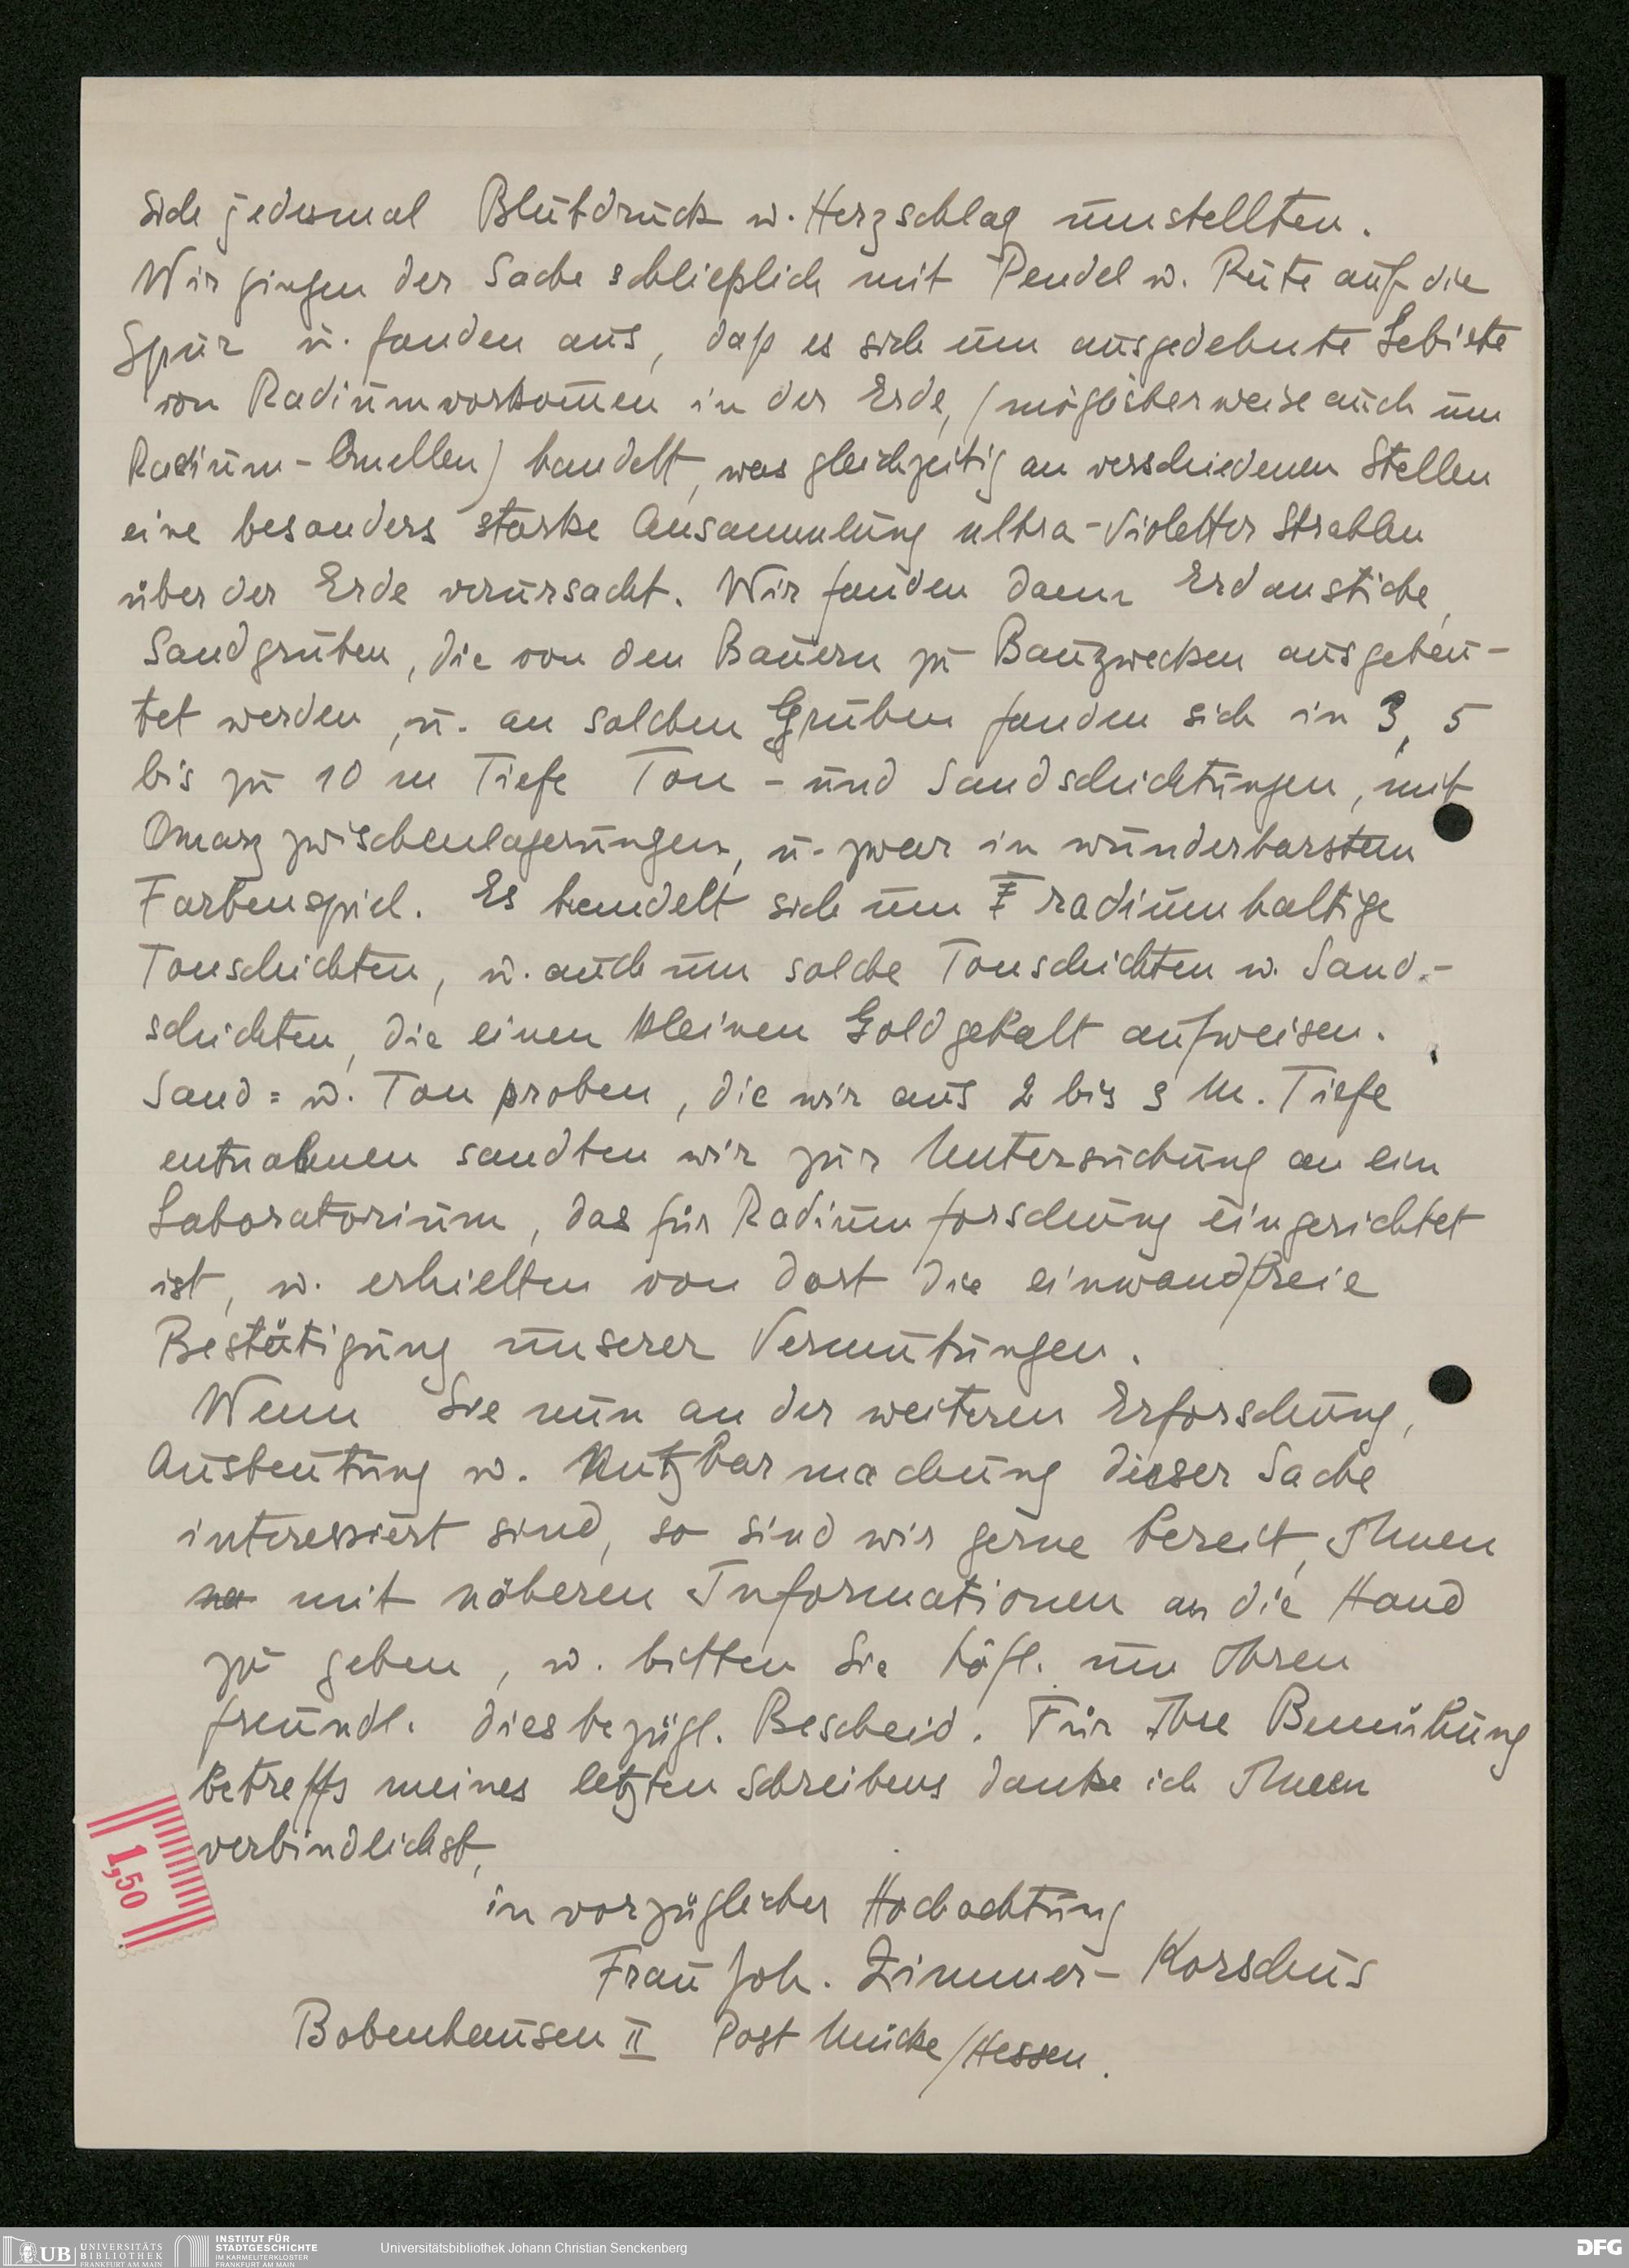 sich jedesmal Blutdruck u. Herzschlag umstellten.
Wir gingen der Sache schließlich mit Pendel u. Rute auf die
Spur u. fanden aus, daß es sich um ausgedehnte Gebiete
von Radiumvorkom̅en in der Erde, (möglicherweise auch um
Radium-Quellen) handelt, was gleichzeitig an verschiedenen Stellen
eine besonders starke Ansammlung ultra-violetter Strahlen
über der Erde verursacht. Wir fanden dann Erdanstiche,
Sandgruben, die von den Bauern zu Bauzwecken ausgebeu-
tet werden, u. an solchen Gruben fanden sich in 3, 5
bis zu 10 m Tiefe Ton- und Sandschichtungen, mit
Quarzzwischenlagerungen, u. zwar in wunderbarstem
Farbenspiel. Es handelt sich um radiumhaltige
Tonschichten, u. auch um solche Tonschichten u. Sand-
schichten, die einen kleinen Goldgehalt aufweisen.
Sand= u. Tonproben, die wir aus 2 bis 3 M. Tiefe
entnahmen sandten wir zur Untersuchung an ein
Laboratorium, das für Radiumforschung eingerichtet
ist, u. erhielten von dort die einwandfreie
Bestätigung unserer Vermutungen.
Wenn Sie nun an der weiteren Erforschung,
Ausbeutung u. Nutzbarmachung dieser Sache
interessiert sind, so sind wir gerne bereit, Ihnen
na mit näheren Informationen an die Hand
zu geben, u. bitten Sie höfl. um Ihren
freundl. diesbezügl. Bescheid. Für Ihre Bemühung
betreffs meines letzten Schreibens danke ich Ihnen
verbindlichst,
1,50
in vorzüglicher Hochachtung
Frau Joh. Zimmer-Korschus
Bobenhausen II Post Mücke/Hessen.
UB UNIVERSITÄTS BIBLIOTHEK FRANKFURT AM MAIN
INSTITUT FÜR STADTGESCHICHTE IM KARMELITERKLOSTER FRANKFURT AM MAIN
Universitätsbibliothek Johann Christian Senckenberg
DFG